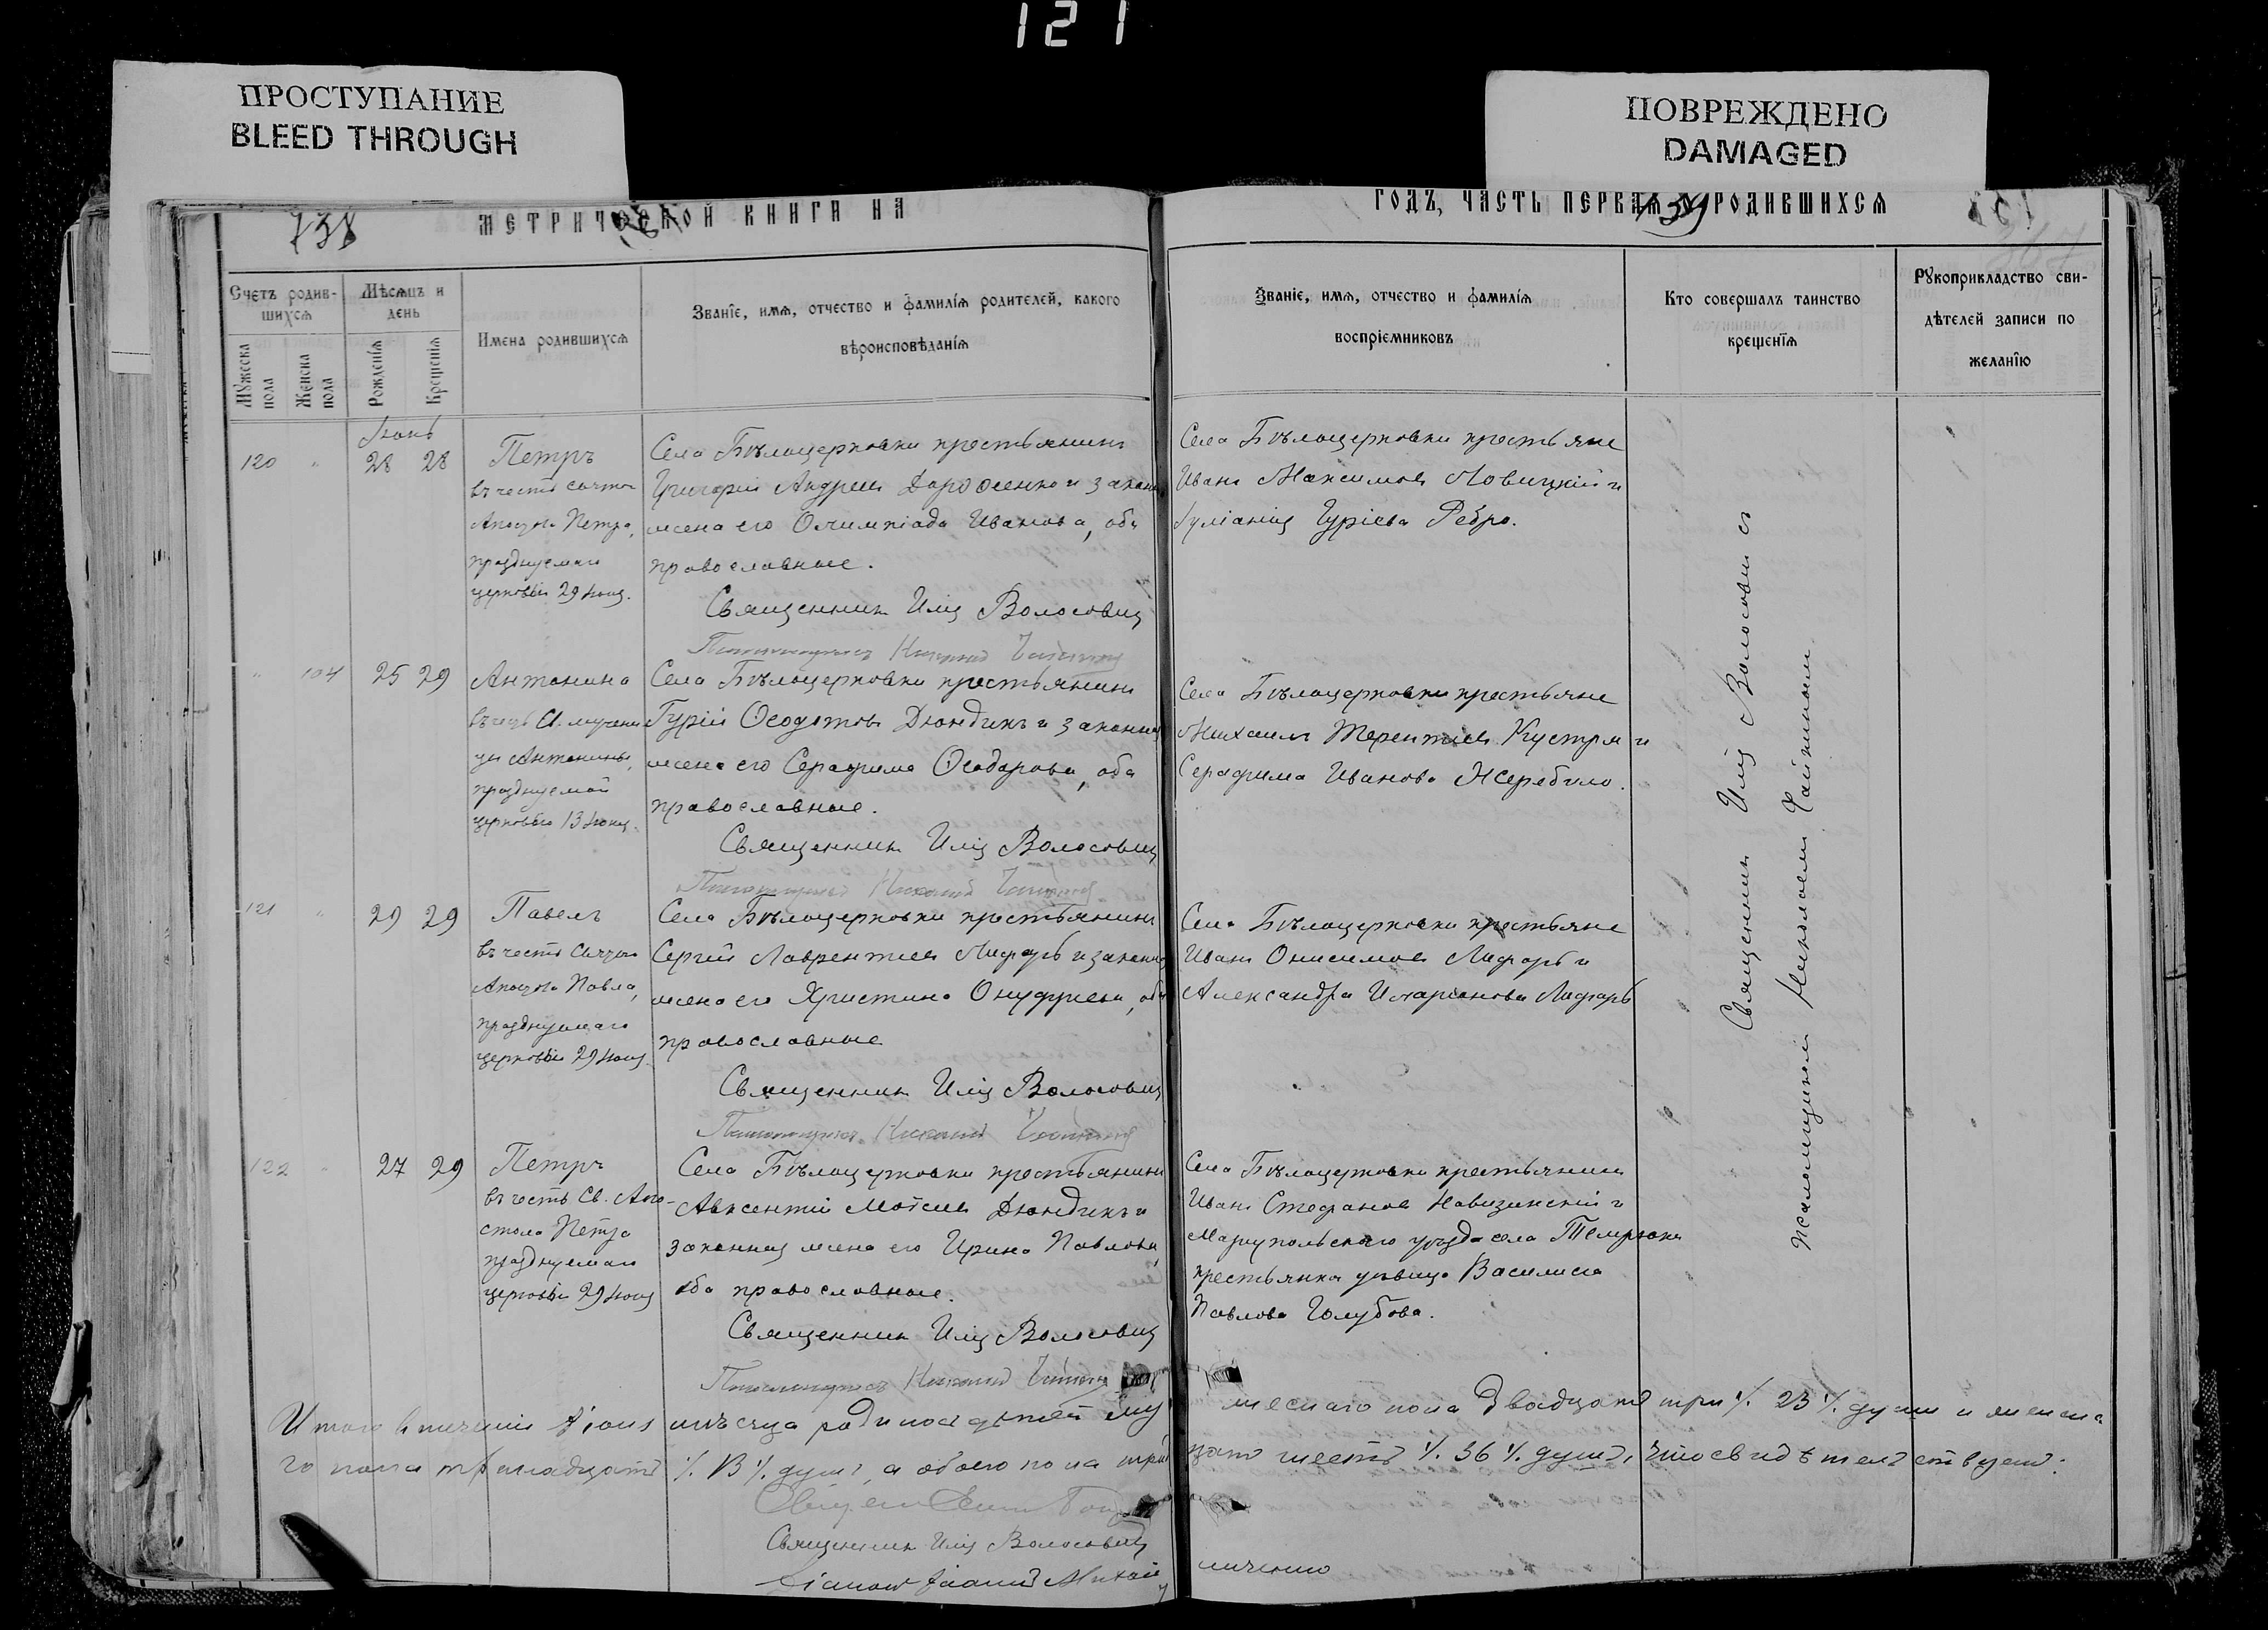 121
ПРОСТУПАНИЕ
BLEED THROUGH
ПОВРЕЖДЕНО
DAMAGED
738
МЕТРИЧЕСКОЙ КНИГИ НА
ГОДЪ, ЧАСТЬ ПЕРВАЯ О РОДИВШИХСЯ
739
Счетъ родив-
шихся
Мужеска пола
Женска пола
Мѣсяцъ и
день
Рожденія
Крещенія
Имена родившихся
Званіе, имя, отчество и фамилія родителей, какого
вѣроисповѣданія
Званіе, имя, отчество и фамилія
воспріемниковъ
Кто совершалъ таинство
крещенія
Рукоприкладство сви-
дѣтелей записи по
желанію
Іюнь
120 " 28 28
Петръ
въ честь
Апостола Петра,
празднуемаго
церковію 29 Іюня.
Села Бѣлоцерковки крестьянинъ
Григорій Андреевъ Дорошенко и законная
жена его Олимпіада Иванова, оба
православные.
Священникъ Илія Волосовичъ
Псаломщикъ Николай
Села Бѣлоцерковки крестьяне
Иванъ Максимовъ Новицкій и
Іуліанія Гуріева Ребро.
" 104 25 29
Антонина
въ честь Св. мучени
цы Антонины,
празднуемой
церковью 13 Іюня.
Села Бѣлоцерковки крестьянинъ
Гурій Ѳеодотовъ Дюндикъ и законная
жена его Серафима Ѳеодорова, оба
православные.
Священникъ Илія Волосовичъ
Псаломщикъ Николай
Села Бѣлоцерковки крестьяне
Михаилъ Терентіевъ Кустря и
Серафима Иванова Жеребило.
121 " 29 29
Павелъ
въ честь
Апостола Павла,
празднуемаго
церковію 29 Іюня.
Села Бѣлоцерковки крестьянинъ
Сергій Лаврентіевъ Лифарь и законная
жена его Христина Онуфріева, оба
православные
Священникъ Илія Волосовичъ
Псаломщикъ Николай
Села Бѣлоцерковки крестьяне
Иванъ Онисимовъ Лифарь и
Александра Иларіонова Лифарь
122 " 27 29
Петръ
въ честь Св. Апо-
стола Петра
празднуемаго
церковію 29 Іюня
Села Бѣлоцерковки крестьянинъ
Авксентій Моѵсеевъ Дюндикъ и
законная жена его Ирина Павлова,
оба православные.
Священникъ Илія Волосовичъ
Псаломщикъ Николай
Села Бѣлоцерковки крестьянинъ
Иванъ Стефановъ Навизинскій и
Маріупольскаго уѣзда села Темрюка
крестьянка дѣвица Василиса
Павлова Голубова.
Священникъ Илія Волосовичъ съ
Псаломщикомъ Николаемъ
Итого въ теченіи Іюня мѣсяца родилось дѣтей му жескаго пола двадцать три ./. 23 ./. душъ и женска
го пола тринадцать ./. 13 ./. душъ, а обоего пола трид цать шесть ./. 36 ./. душъ, что свидѣтельствуемъ:
Священникъ Илія Волосовичъ